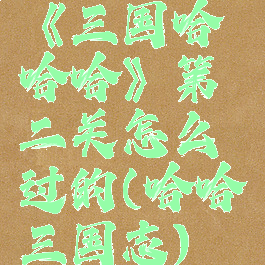 《三国哈
哈哈》第
二关怎么
过的(哈哈
三国志)